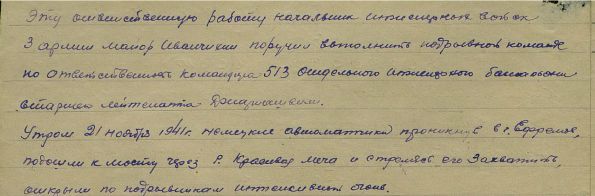 Эту ответственную работу начальник инженерных войск
3 армии майор Иванчихин поручил выполнить подрывной команде
по ответственность командира 513 отдельного инженерного батальона
старшего лейтенанта
Утром 21 ноября 1941 г. немецкие автоматчики проникнув в г. Ефремов,
подошли к мосту через р. Красивая меча и стремясь его захватить,
открыли по подрывникам интенсивный огонь.